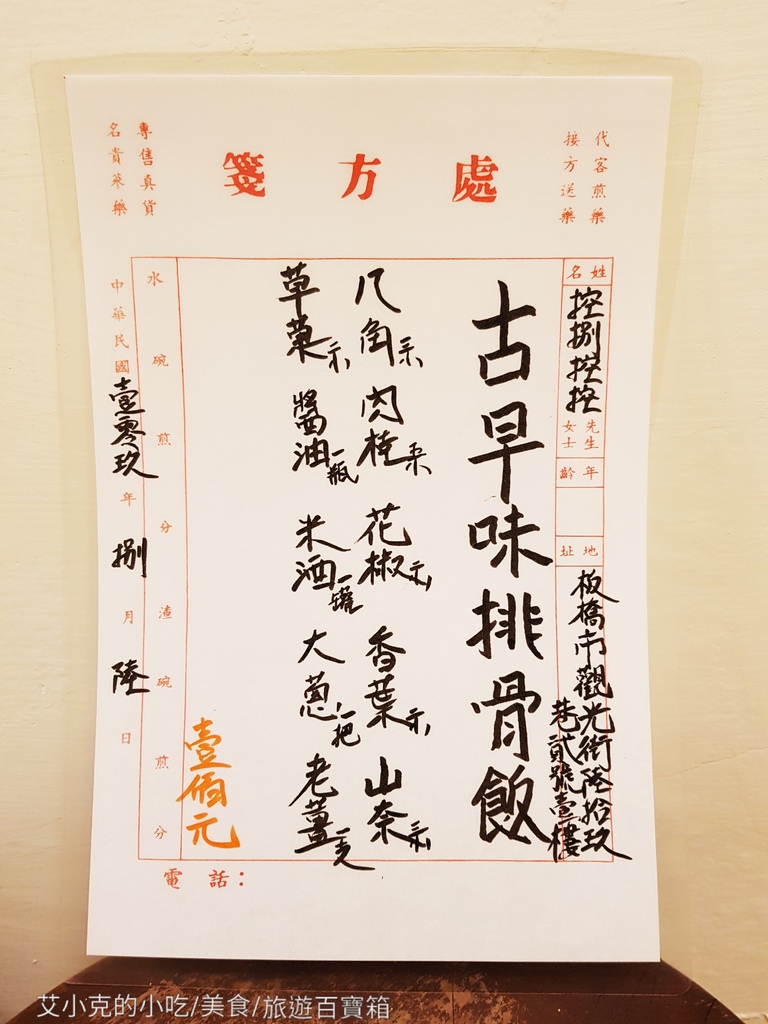 處方箋
代客煎藥
接方送藥
專售真貨
名貴蔘藥
姓名
控捌控控
先生
女士
年齡
地址
板橋市觀光街陸拾玖
巷貳號壹樓
古早味排骨飯
八角 肉桂 花椒 香葉 山奈
草菓 醬油一瓶 米酒一罐 大蔥一把 老薑
壹佰元
水碗煎分渣碗煎分
中華民國壹零玖年捌月陸日
電話：
艾小克的小吃/美食/旅遊百寶箱